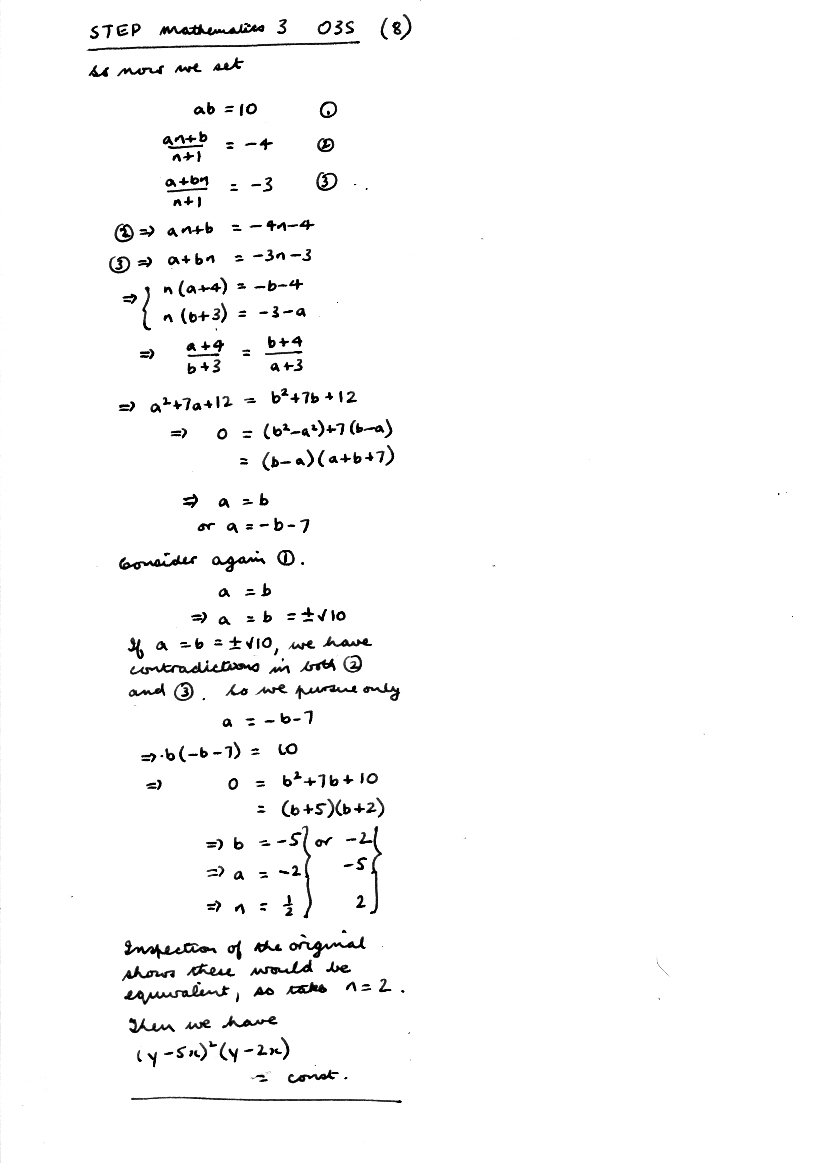 STEP Mathematics 3 03S (8)
So now we set
ab = 10 ①
an+b / n+1 = -4 ②
a+bn / n+1 = -3 ③ ..
② ⇒ an+b = -4n-4
③ ⇒ a+bn = -3n-3
⇒ { n(a+4) = -b-4
n(b+3) = -3-a
⇒ a+4 / b+3 = b+4 / a+3
⇒ a²+7a+12 = b²+7b+12
⇒ 0 = (b²-a²)+7(b-a)
= (b-a)(a+b+7)
⇒ a = b
or a = -b-7
Consider again ①.
a = b
⇒ a = b = ±√10
If a = b = ±√10, we have
contradictions in both ②
and ③. So we pursue only
a = -b-7
⇒ b(-b-7) = 10
⇒ 0 = b²+7b+10
= (b+5)(b+2)
⇒ b = -5 } or -2 }
⇒ a = -2 } -5 }
⇒ n = ½ } 2 }
Inspection of the original
shows these would be
equivalent, so take n = 2.
Then we have
(y-5x)²(y-2x)
= const.